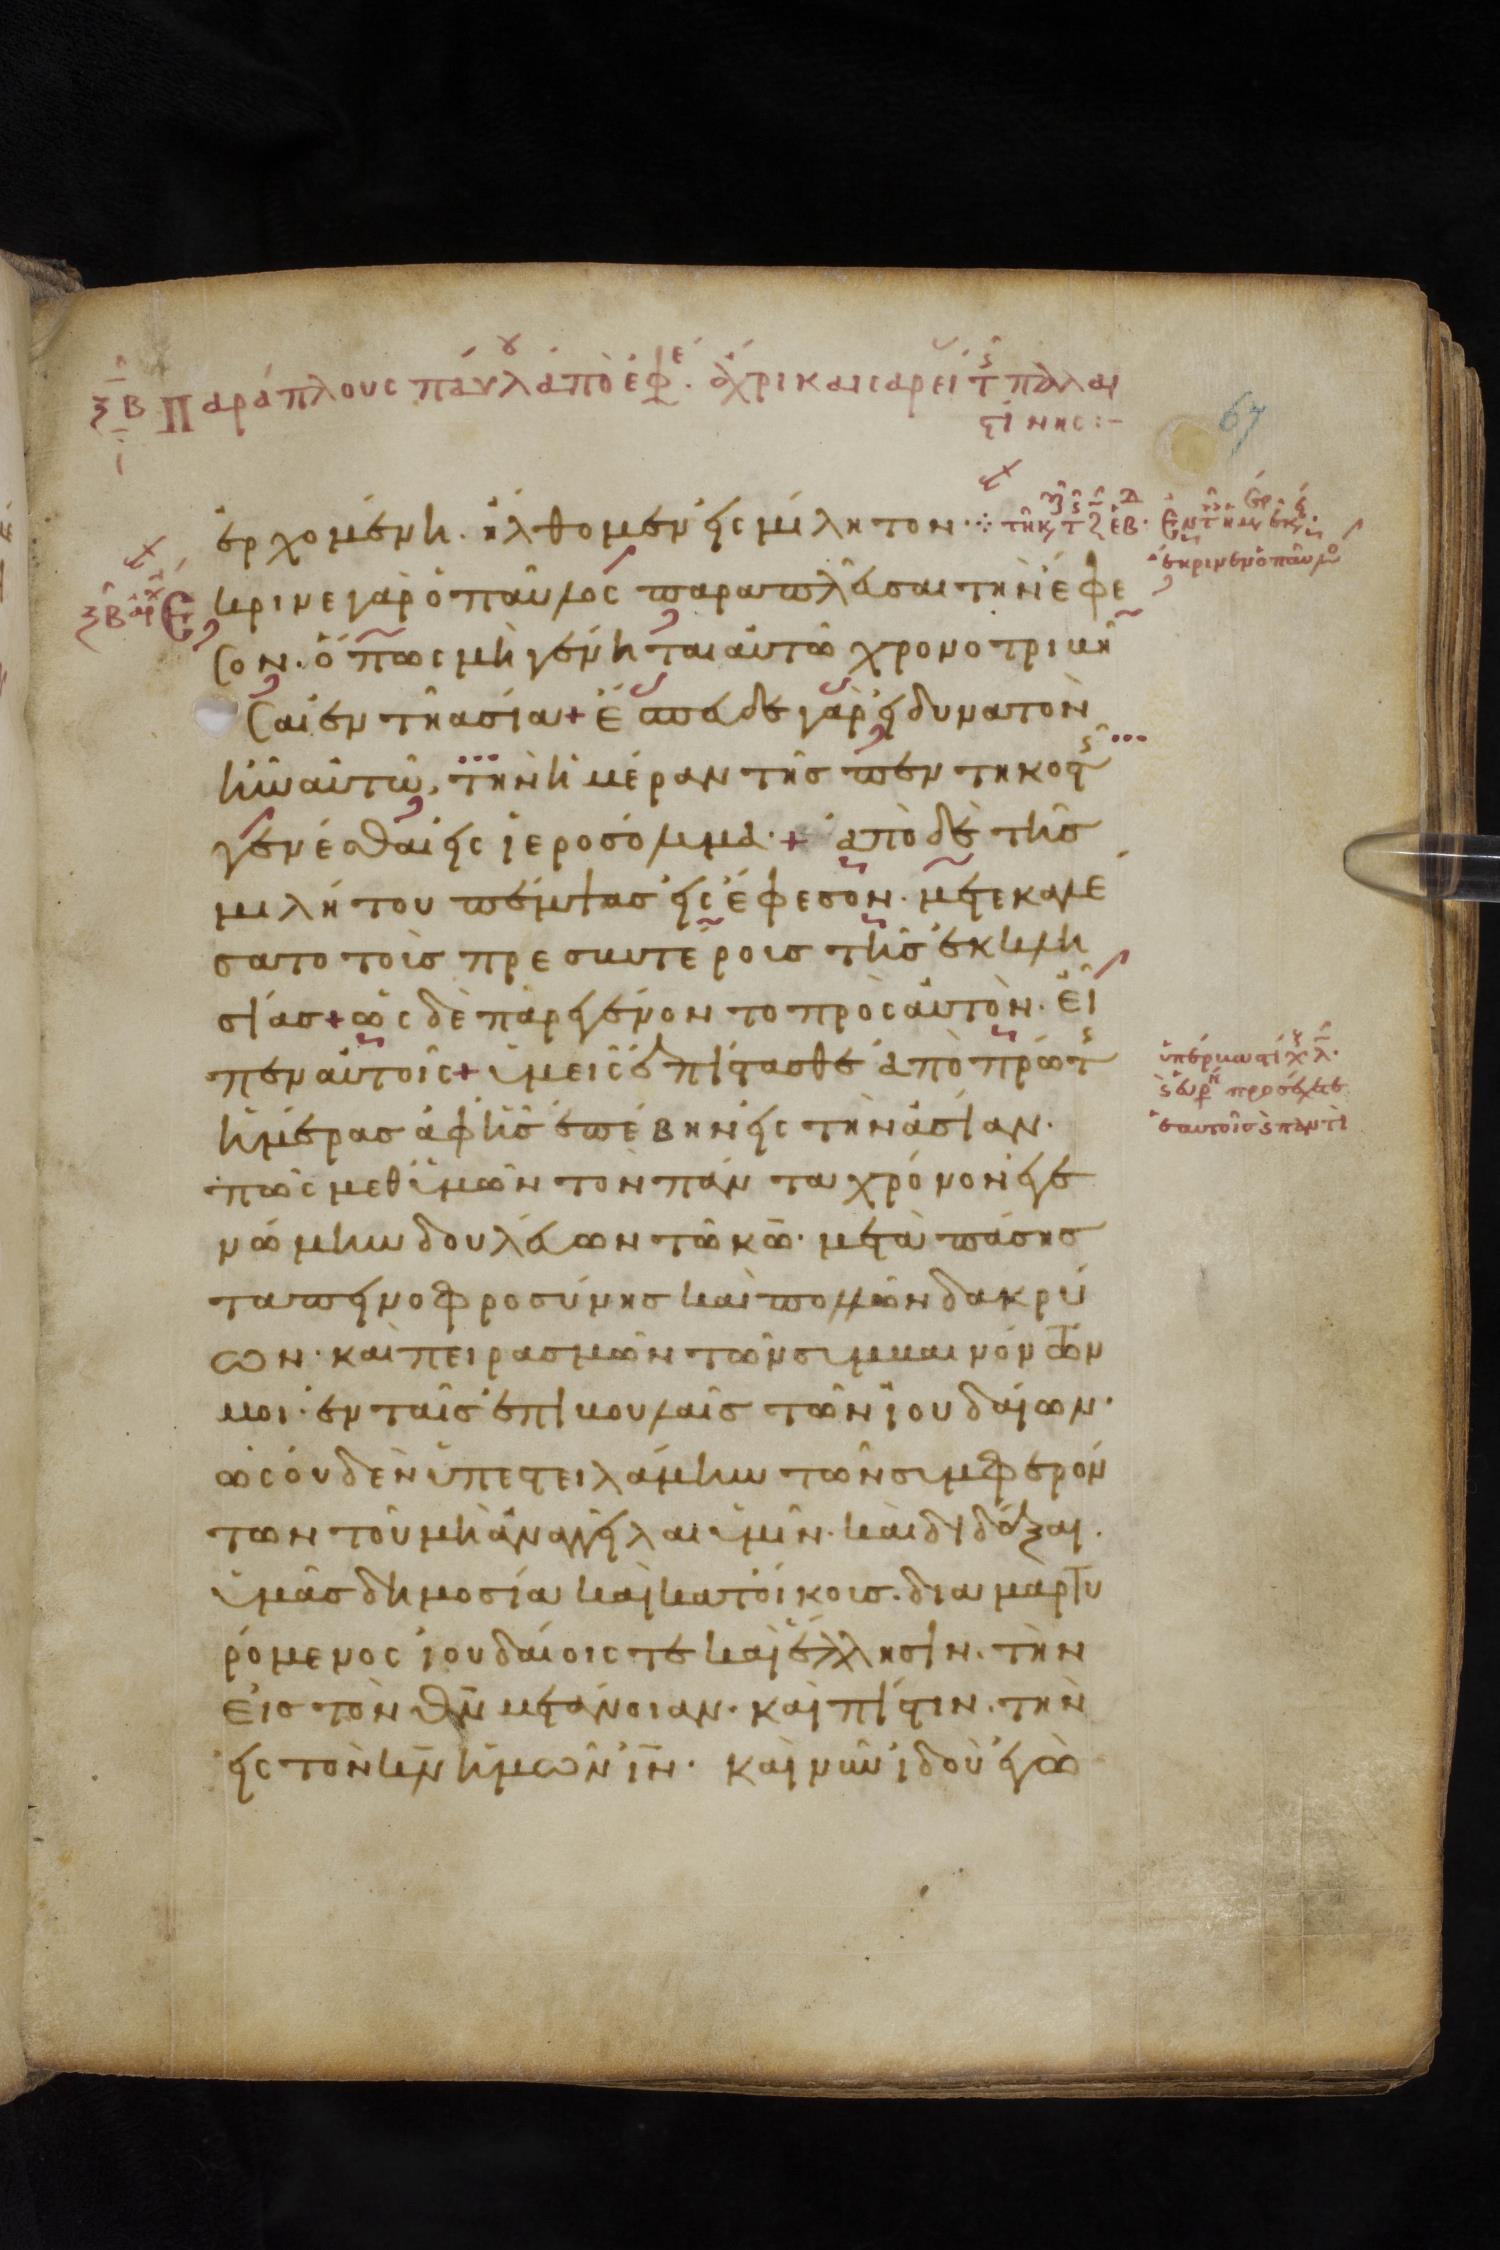 Παράπλους παύλου ἀπὸ ἐφέ. ἄχρι καισαρεί τῆς παλαι
στίνης:-
ἐρχομένη. ἤλθομεν εἰς μίλητον.
Ἔκρινε γὰρ ὁ παῦλος παραπλεῦσαι τὴν ἔφε
σον. ὅπως μὴ γένηται αὐτῶ χρονοτριβῆ
σαι ἐν τῆ ασία + Ἔσπευδε γὰρ εἰ δυνατὸν
ἦν αὐτῶ, τὴν ἡμέραν τῆσ πεντηκοστῆς
γενέσθαι εἰς ἱεροσόλυμα. + ἀπὸ δὲ τῆσ
μιλήτου πέμψασ εἰς ἔφεσον. μετεκαλέ
σατο τοὺσ πρεσβυτέρουσ τῆσ ἐκκλη
σίασ + ὡς δὲ παρεγένοντο πρὸς αὐτὸν. εἶ
πεν αὐτοῖς + ὑμεῖς ἐπίστασθε ἀπὸ πρώτης
ἡμέρασ ἀφ ἧσ ἐπέβην εἰς τὴν ἀσίαν.
πῶς μεθ ὑμῶν τὸν πάντα χρόνον ἐγε
νόμην δουλεύων τῶ κῶ. μετὰ πάσησ
ταπεινοφροσύνησ καὶ πολλῶν δακρύ
ων. καὶ πειρασμῶν τῶν συμβαινόντων
μοι. ἐν ταῖσ ἐπιβουλαῖσ τῶν ἰουδαίων.
ὡς οὐδὲν ὑπεστειλάμην τῶν συμφερόν
των τοῦ μὴ ἀναγγεῖλαι ὑμῖν. καὶ διδάξαι.
ὑμᾶσ δημοσία καὶ κατοίκουσ. διαμαρτυ
ρόμενος ἰουδαίοις τε καὶ ἕλλησιν. τὴν
εἰσ τὸν θν μετάνοιαν. καὶ πίστιν. τὴν
εἰς τὸν κν ἡμῶν ἰν. καὶ νῦν ἰδοὺ ἐγὼ
ἔκρινεν ὁ παῦλο
ἑαυτοῖσ παντὶ